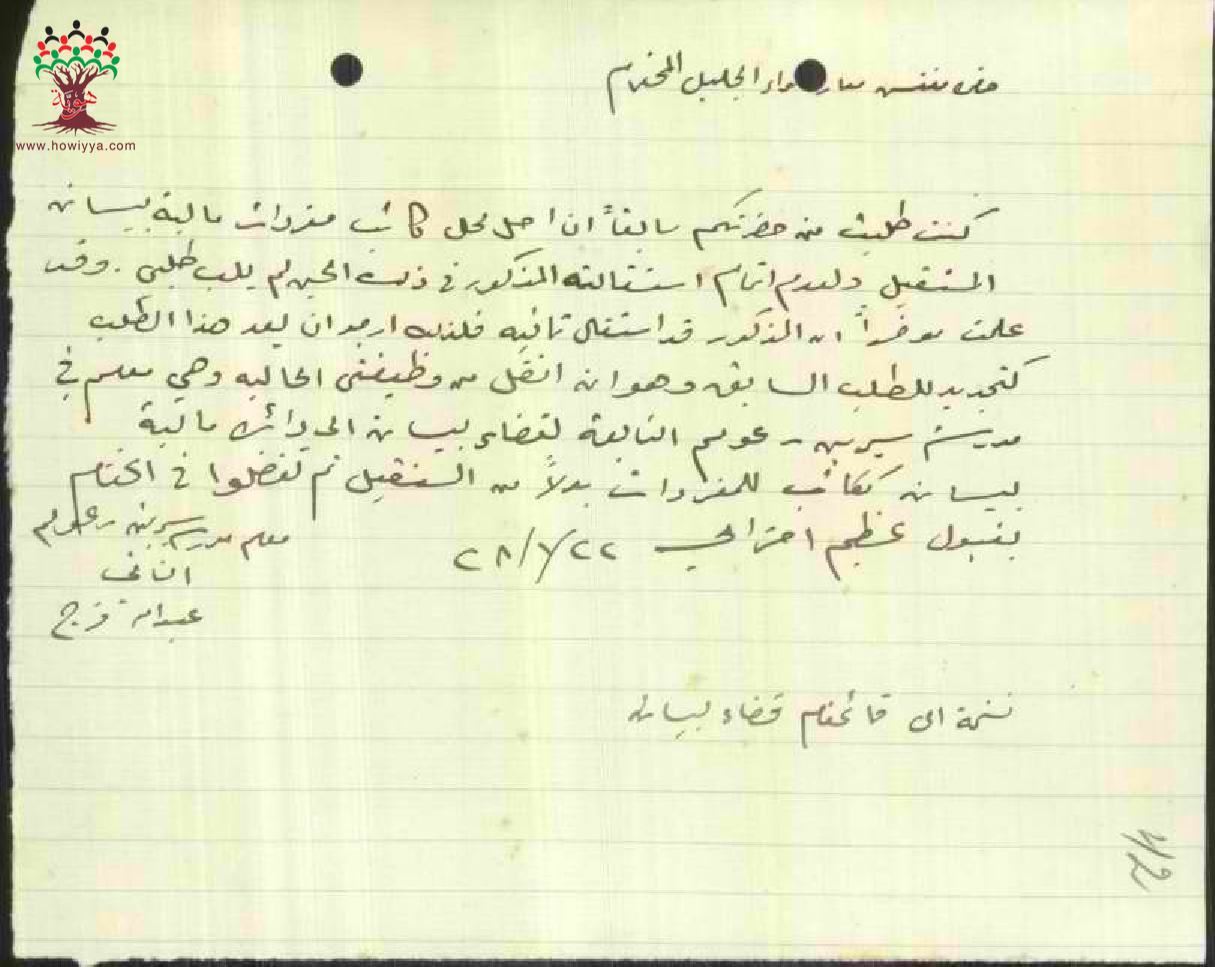 هوية
www.howiyya.com
حضرة مفتش معارف لواء الجليل المحترم
كنت طلبت من حضرتكم سابقاً ان احل محل كاتب مفردات مالية بيسان
المستقيل ولعدم اتمام استقالته المذكور في ذلك الحين لم يلب طلبي. وقد
علمت موخراً ان المذكور قد استقال ثانيه فلذلك ارجو ان يعد هذا الطلب
كتجديد للطلب السابق وهو ان انقل من وظيفتي الحاليه وهي معلم في
مدرسة سيرين - عولم التابعة لقضاء بيسان الى دائرة مالية
بيسان ككاتب للمفردات بدلاً من المستقيل ثم تفضلوا في الختام
بقبول عظيم احترامي ٢٨/٧/٢٢
معلم مدرسة سيرين - عولم
الثاني
عبدالله فرج
نسخة الى قائمقام قضاء بيسان